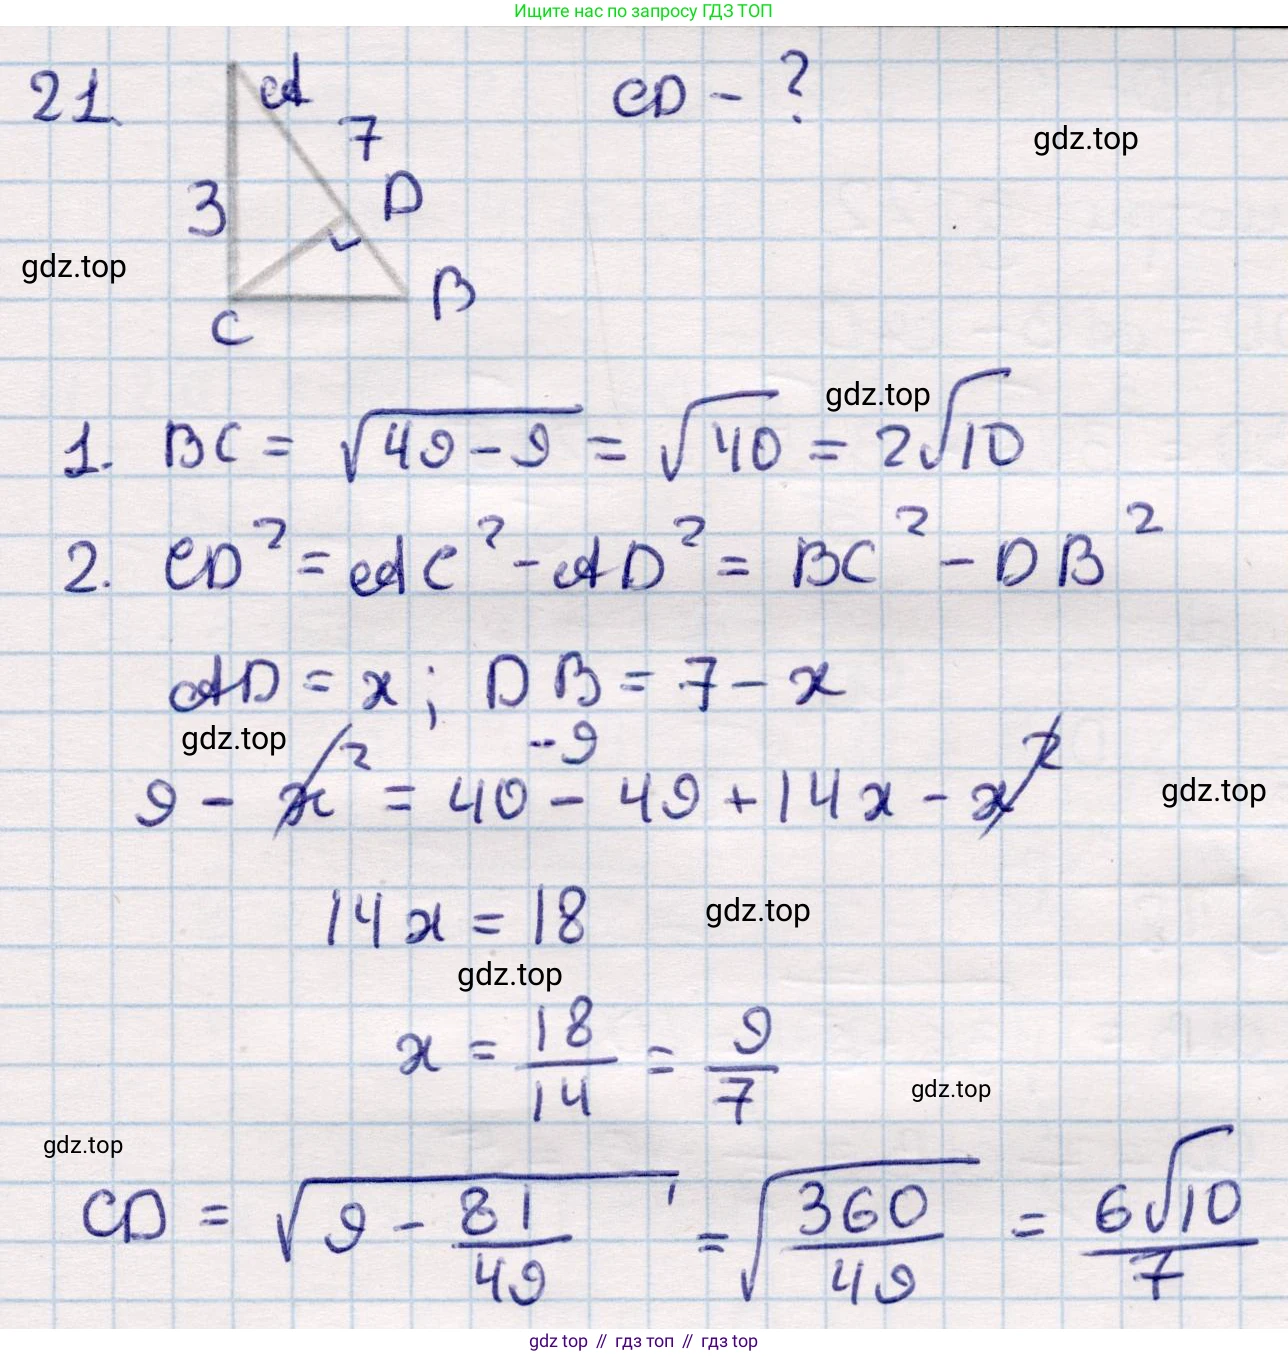 Ищите нас по запросу ГДЗ ТОП
21.
A
7
CD - ?
gdz.top
3
D
gdz.top
B
C
gdz.top
1. BC = √(49 - 9) = √40 = 2√10
2. CD² = AC² - AD² = BC² - DB²
AD = x; DB = 7 - x
gdz.top
-9
9 - x² = 40 - 49 + 14x - x²
gdz.top
14x = 18
gdz.top
gdz.top
x = 18/14 = 9/7
gdz.top
gdz.top
CD = √(9 - 81/49) = √(360/49) = 6√10/7
gdz top // гдз топ // gdz.top